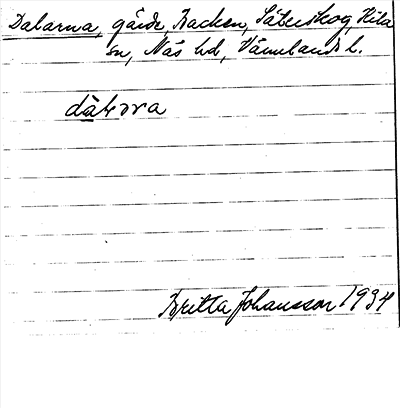 Dalarna, gärde, Backen, Säterskog, Kila
sn, Näs hd, Värmlands l.
dàlarna
Britta Johansson 1934